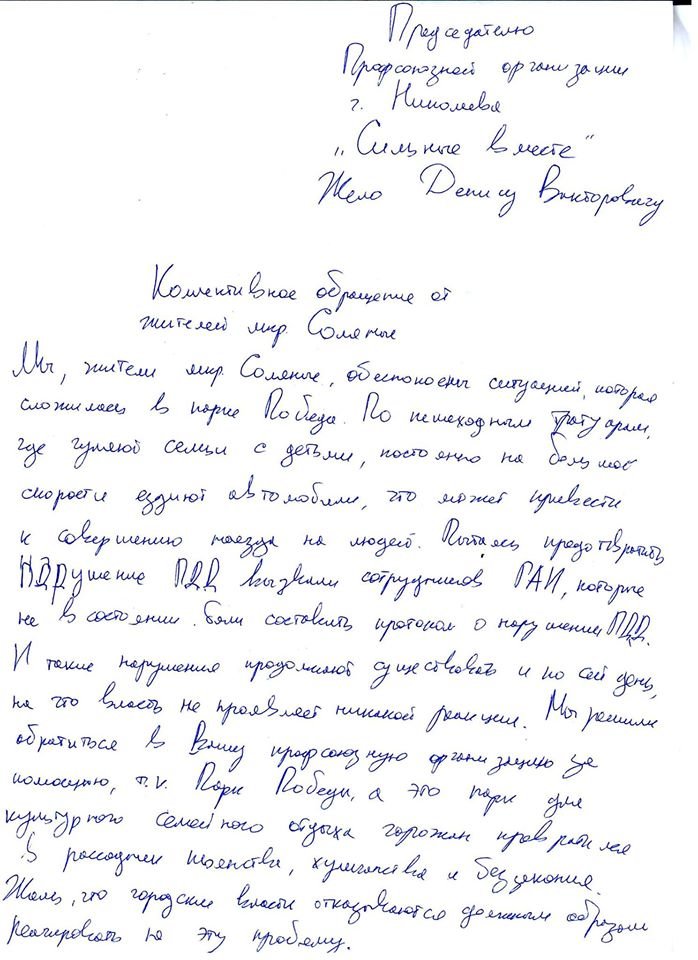 Председателю
Профсоюзной организации
г. Николаева
„Сильные вместе"
Жело Денису Викторовичу
Коллективное обращение от
жителей мкр. Соляные
Мы, жители мкр. Соляные, обеспокоены ситуацией, которая
сложилась в парке Победа. По пешеходным тротуарам,
где гуляют семьи с детьми, постоянно на большой
скорости ездиют автомобили, что может привезти
к совершению наезда на людей. Пытаясь предотвратить
нарушение ПДД вызвали сотрудников ГАИ, которые
не в состоянии были составить протокол о нарушении ПДД.
И такие нарушения продолжают существовать и по сей день,
на что власть не проявляет никакой реакции. Мы решили
обратиться в Вашу профсоюзную организацию за
помощью, т.к. Парк Победы, а это парк для
культурного семейного отдыха горожан превратился
в рассадник пьянства, хулиганства и беззакония.
Жаль, что городские власти отказываются должным образом
реагировать на эту проблему.